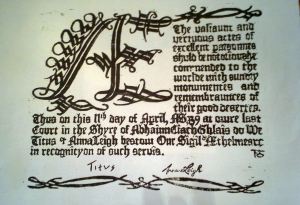 The valiaunt and
vertuous actes of
excellent parsonnes
shuld be notoriouslie
commended to the
worlde with sundry
monumentes and
remembraunces of
their good desertes.
Thus on this 11th day of April, AS 39 at oure last
Court in the Shyre of do We
Titus & AnnaLeigh bestow Our Sigil Æthelmearc
in recognicyon of such servis.
Titus AnnaLeigh